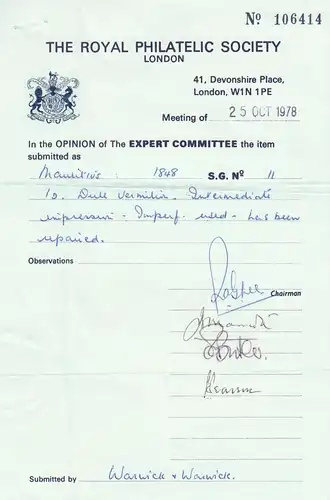 Nº 106414
THE ROYAL PHILATELIC SOCIETY
LONDON
41, Devonshire Place,
London, W1N 1PE
Meeting of 25 OCT 1978
In the OPINION of The EXPERT COMMITTEE the item
submitted as
Mauritius: 1848 S.G. Nº 11
1d. Dull Vermilion. Intermediate
impression - Imperf. used - has been
repaired.
Observations
Chairman
Submitted by Warwick & Warwick.